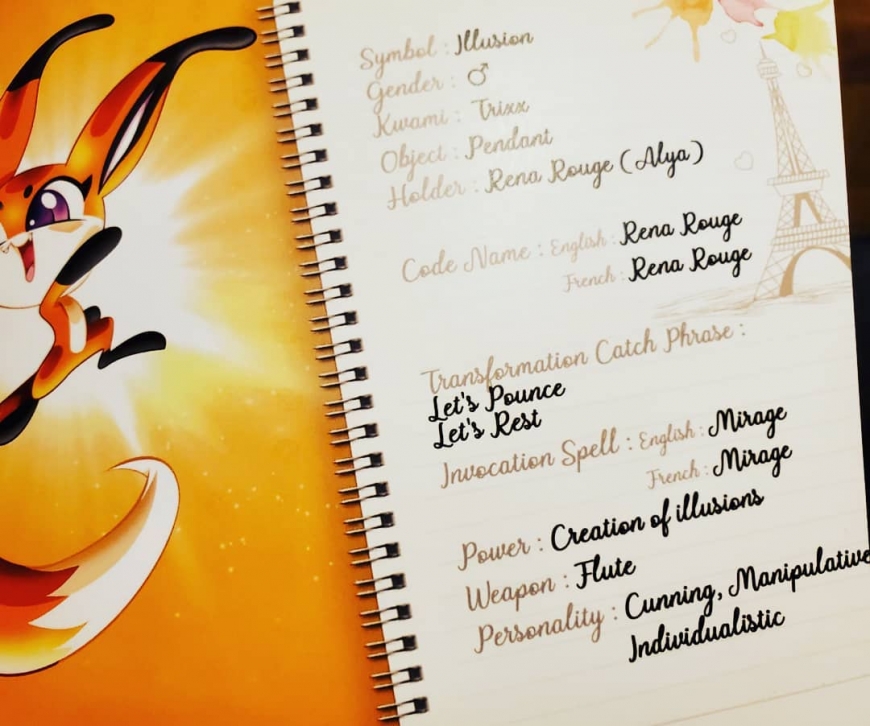 Symbol : Illusion
Gender : ♂
Kwami : Trixx
Object : Pendant
Holder : Rena Rouge (Alya)
Code Name : English : Rena Rouge
French : Rena Rouge
Transformation Catch Phrase :
Let's Pounce
Let's Rest
Invocation Spell : English : Mirage
French : Mirage
Power : Creation of illusions
Weapon : Flute
Personality : Cunning, Manipulative
Individualistic